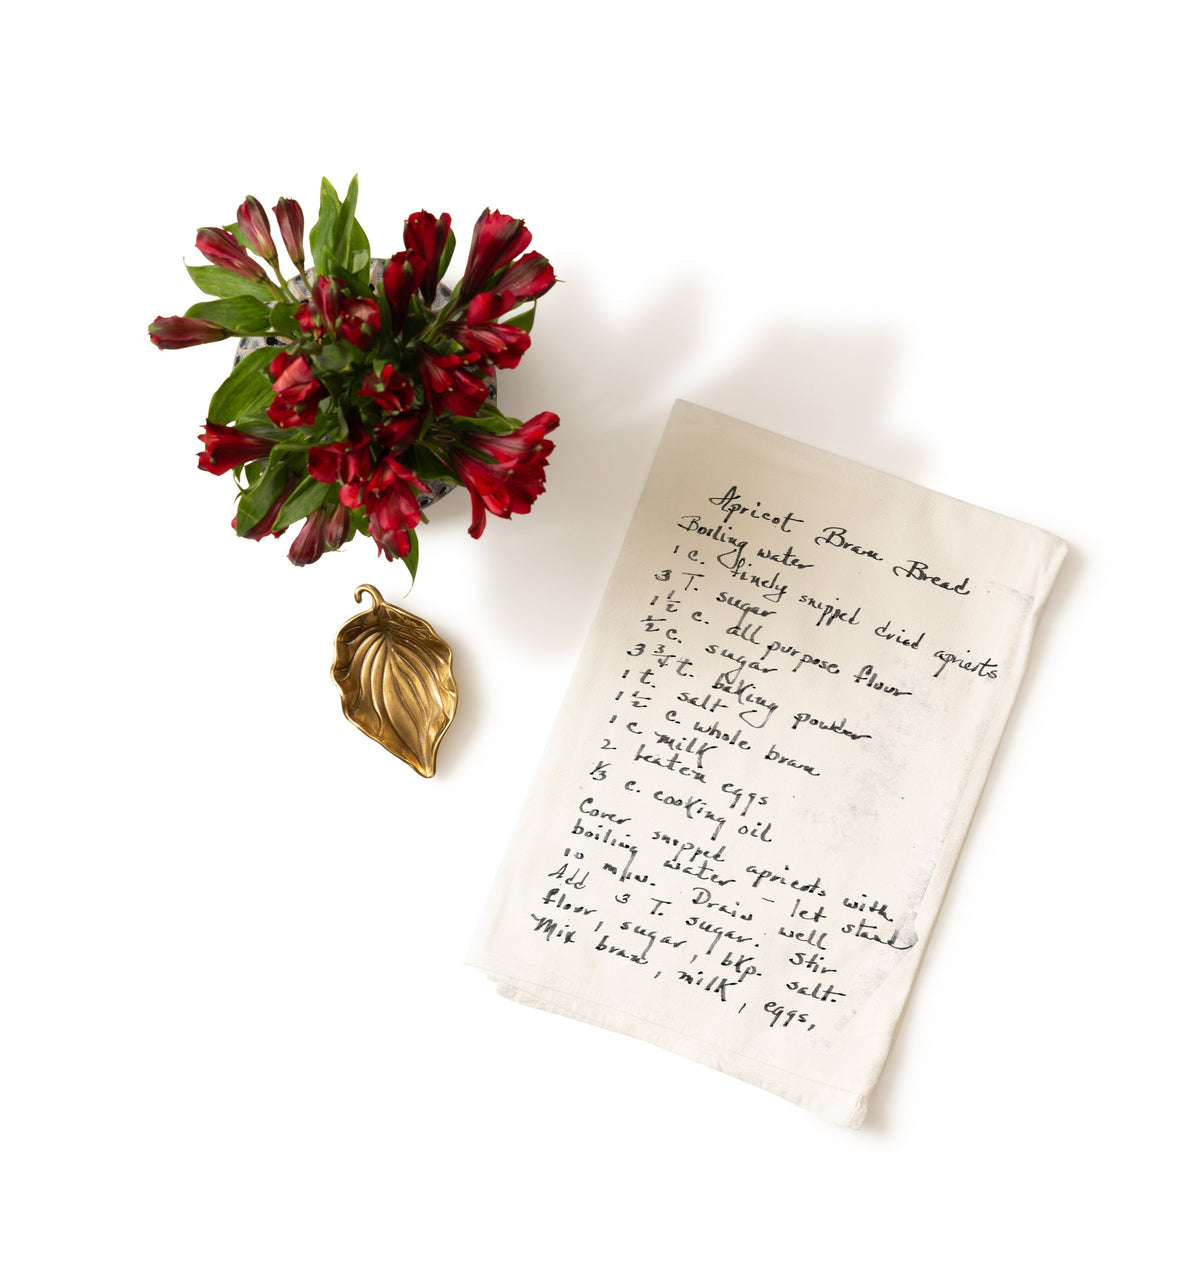 Apricot Bran Bread
Boiling water
1 c. finely snipped dried apricots
3 T. sugar
1 1/2 c. all purpose flour
1/2 c. sugar
3 3/4 t. baking powder
1 t. salt
1 1/2 c. whole bran
1 c milk
2 beaten eggs
1/3 c. cooking oil
Cover snipped apricots with
boiling water - let stand
10 min. Drain well
Add 3 T. sugar. Stir
flour, sugar, bkp. salt.
Mix bran, milk, eggs,